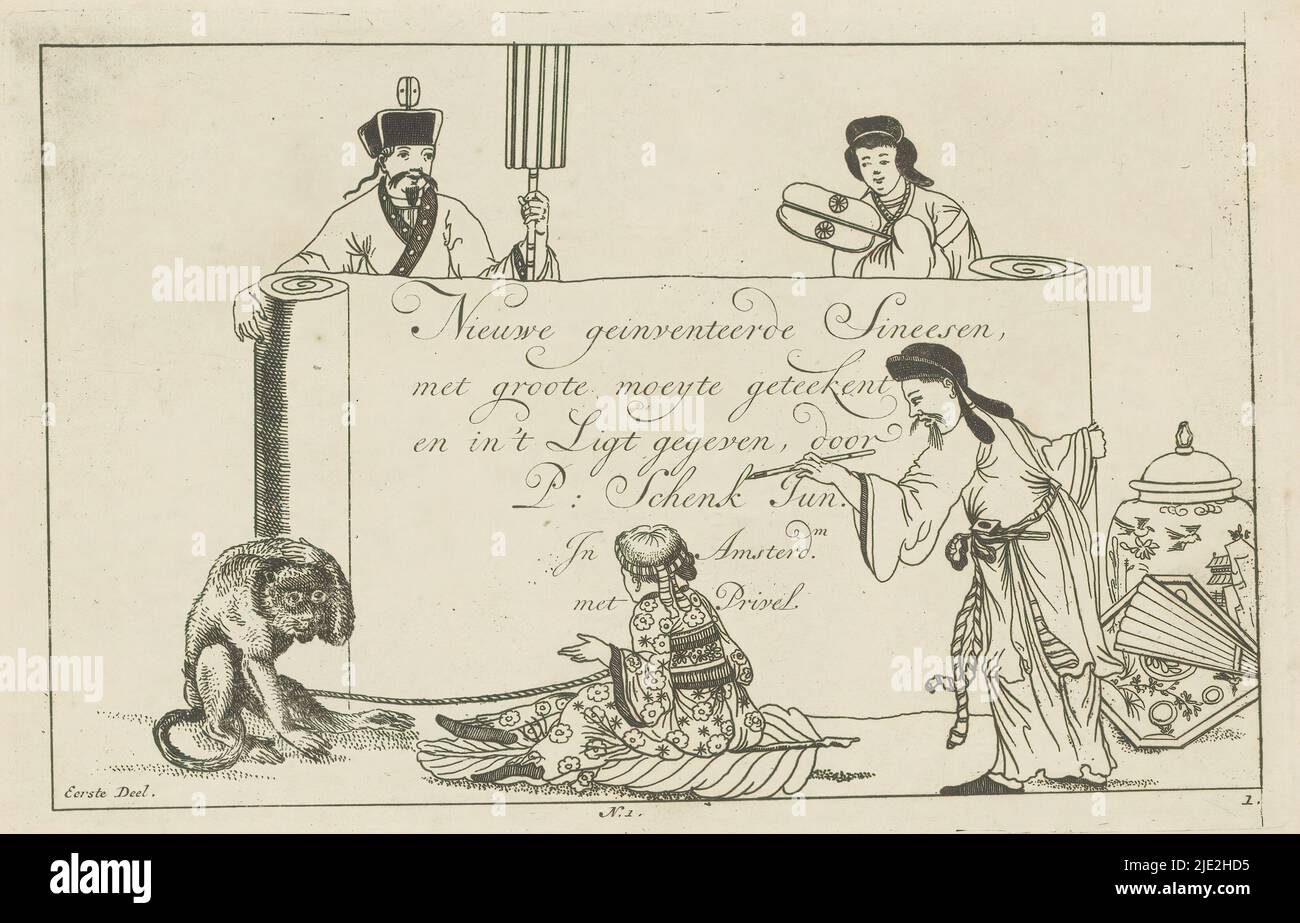 Nieuwe geinventeerde Sineesen,
met groote moeyte geteekent
en in't Ligt gegeven, door
P: Schenk Jun.
In Amsterd.m
met Privel.
Eerste Deel.
N: 1.
1.
alamy
Image ID: 2JE2HD5
www.alamy.com